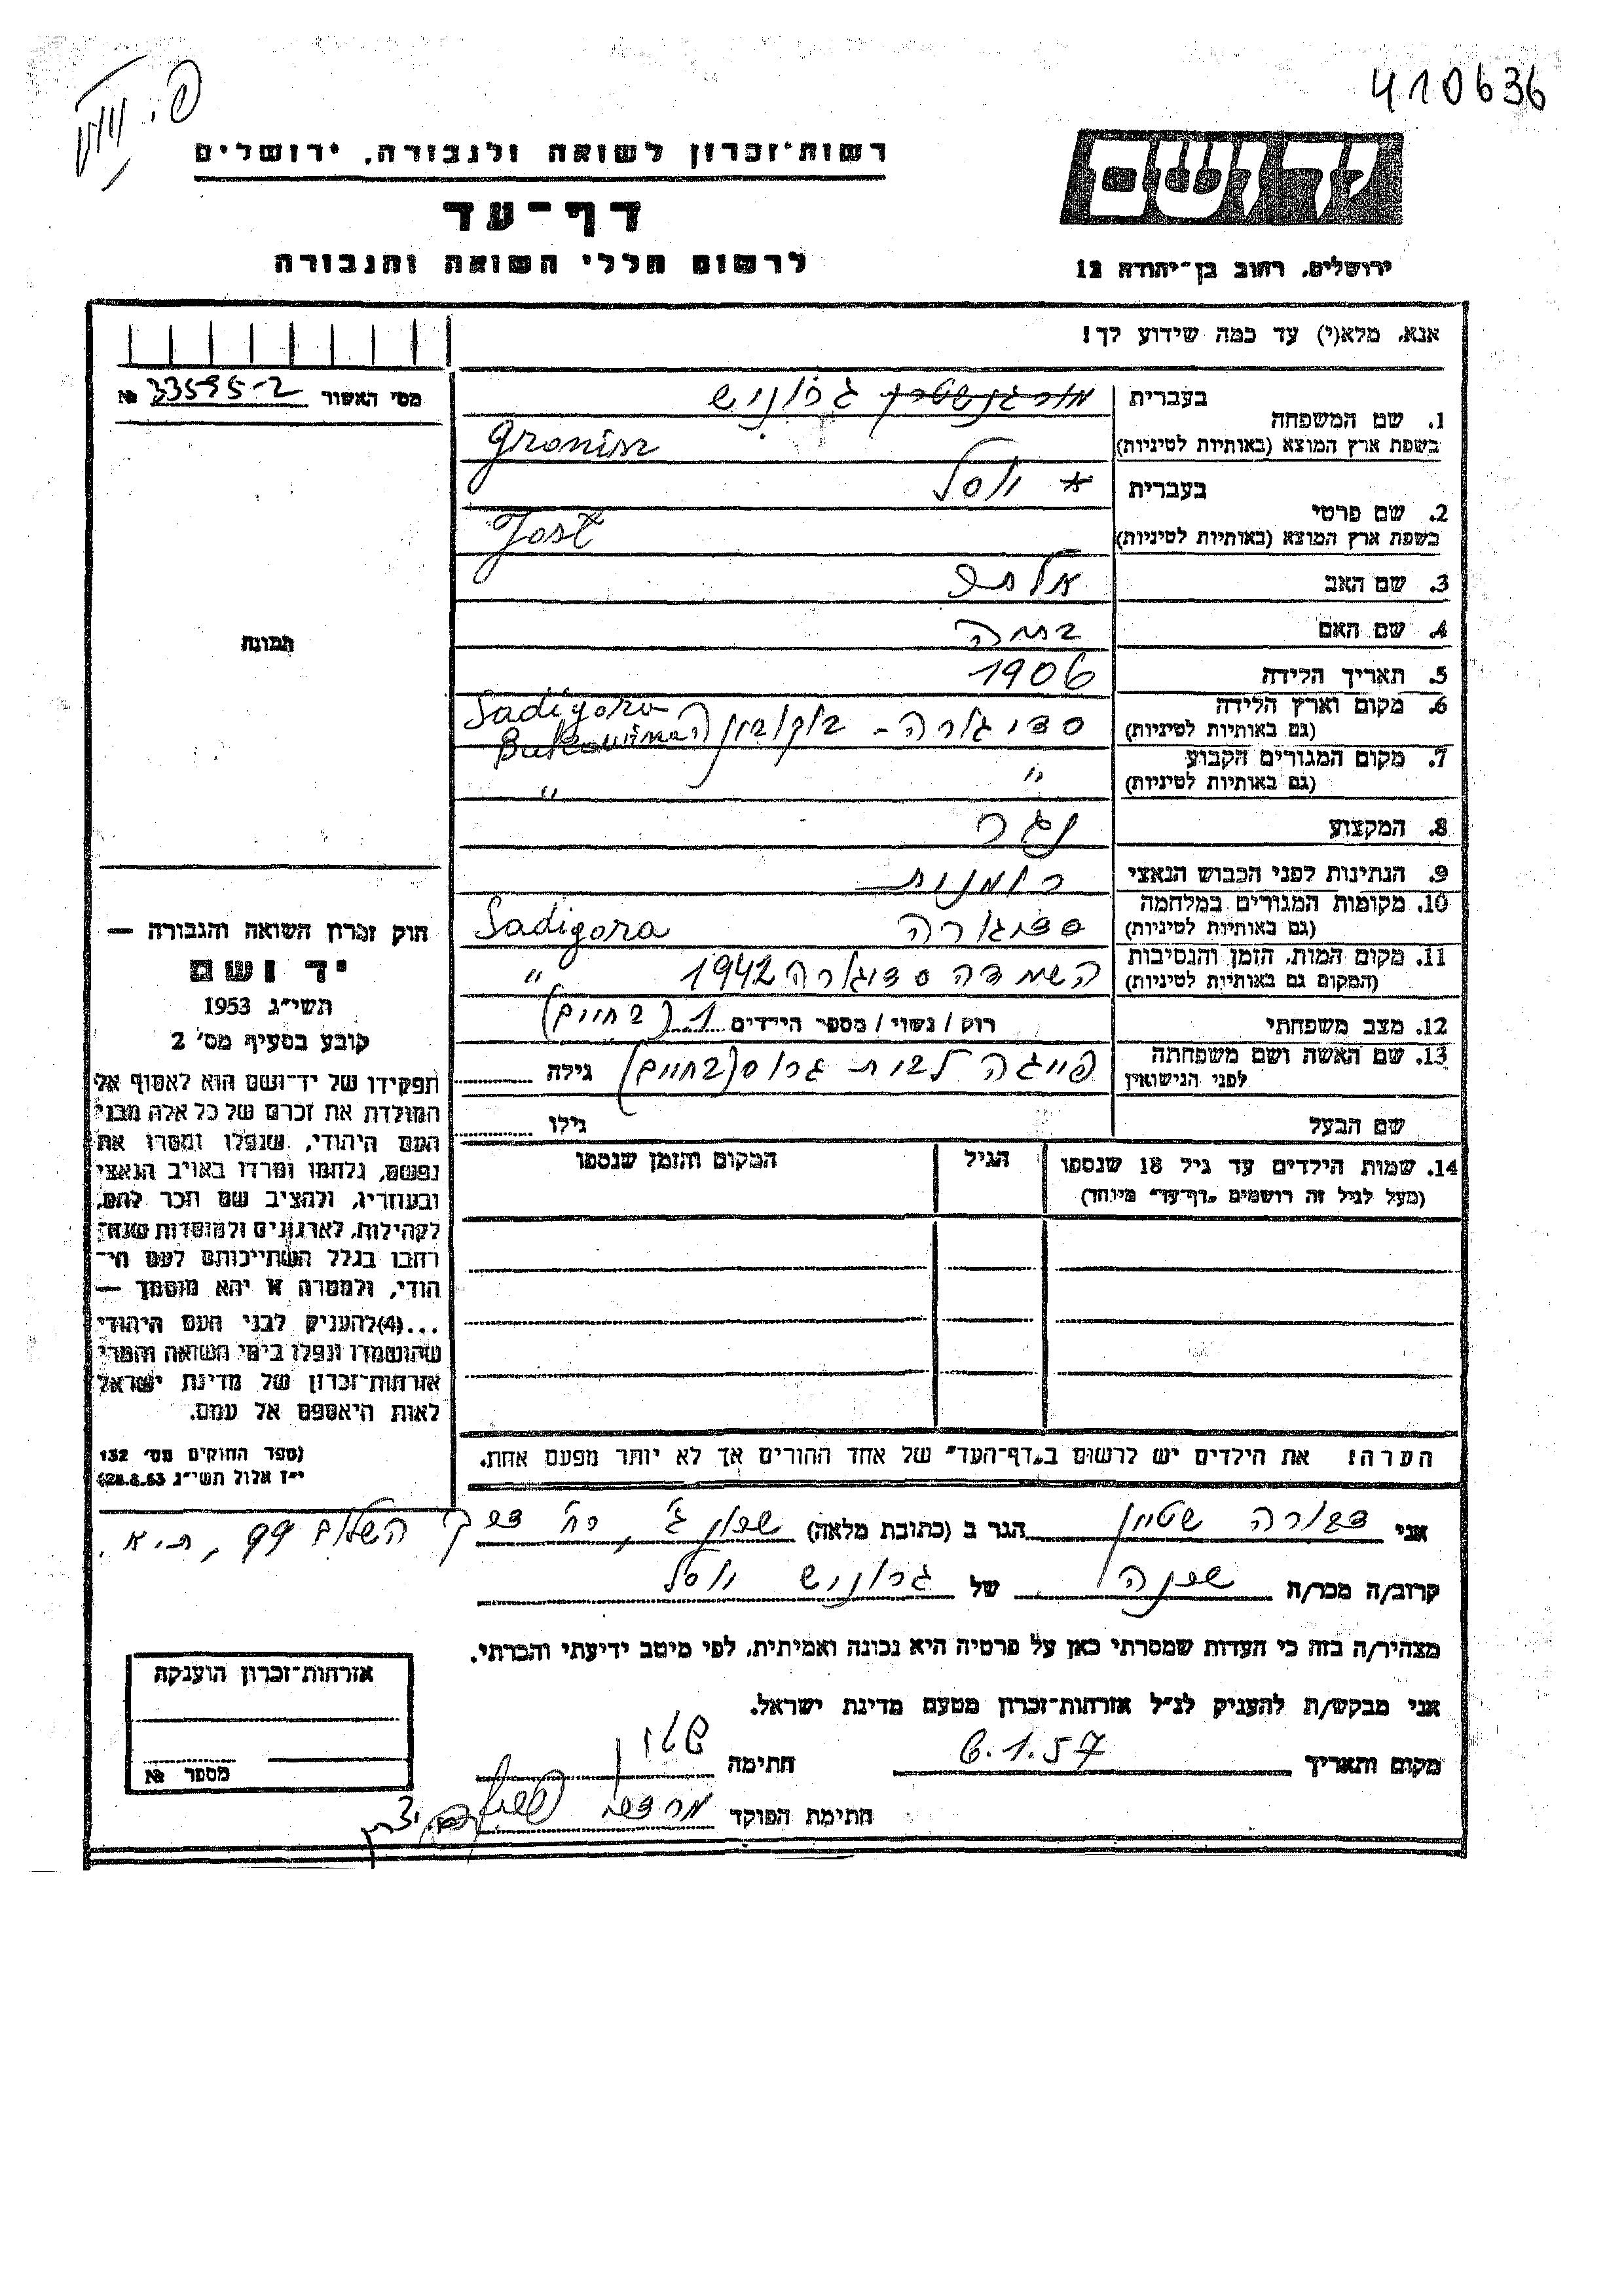 410636
רשות־זכרון לשואה ולגבורה, ירושלים
דף־עד
לרשום חללי השואה והגבורה
יד ושם
ירושלים, רחוב בן־יהודה 12
אנא, מלא(י) עד כמה שידוע לך!
מס׳ האשור 33595-2 №
1. שם המשפחה
בעברית מורגנשטרן גרוניש
בשפת ארץ המוצא (באותיות לטיניות) Gronisz
2. שם פרטי
בעברית * יוסל
בשפת ארץ המוצא (באותיות לטיניות) Jost
3. שם האב
4. שם האם
5. תאריך הלידה 1906
6. מקום וארץ הלידה סדיגורה - בוקובינה Sadigora
(גם באותיות לטיניות) Bukowina
7. מקום המגורים הקבוע " "
(גם באותיות לטיניות)
8. המקצוע נגר
9. הנתינות לפני הכבוש הנאצי רומנית
10. מקומות המגורים במלחמה סדיגורה Sadigora
(גם באותיות לטיניות)
11. מקום המות, הזמן והנסיבות השמדה סדיגורה 1942 "
(המקום גם באותיות לטיניות)
12. מצב משפחתי רווק / נשוי / מספר הילדים 1 (בחיים)
13. שם האשה ושם משפחתה פייגה לבית גרוס (בחיים) גילה
לפני הנישואין
שם הבעל גילו
14. שמות הילדים עד גיל 18 שנספו הגיל המקום והזמן שנספו
(מעל לגיל זה רושמים „דף־עד” מיוחד)
הערה! את הילדים יש לרשום ב„דף־העד” של אחד ההורים אך לא יותר מפעם אחת.
תמונה
חוק זכרון השואה והגבורה —
יד ושם
תשי״ג 1953
קובע בסעיף מס׳ 2
תפקידו של יד־ושם הוא לאסוף אל
המולדת את זכרם של כל אלה מבני
העם היהודי, שנפלו ומסרו את
נפשם, נלחמו ומרדו באויב הנאצי
ובעוזריו, ולהציב שם וזכר להם,
לקהילות, לארגונים ולמוסדות שנח־
רבו בגלל השתייכותם לעם הי־
הודי, ולמטרה זו יהא מוסמך —
...(4) להעניק לבני העם היהודי
שהושמדו ונפלו בימי השואה והמרי
אזרחות־זכרון של מדינת ישראל
לאות היאספם אל עמם.
(ספר החוקים מס׳ 132
י״ז אלול תשי״ג 28.8.53)
אני דבורה שטיין הגר ב (כתובת מלאה) שכון ג׳, רח׳ דרך השלום 99, ת.א.
קרוב/ה מכר/ה שכנה של גרוניש יוסל
מצהיר/ה בזה כי העדות שמסרתי כאן על פרטיה היא נכונה ואמיתית, לפי מיטב ידיעתי והכרתי.
אני מבקש/ת להעניק לנ״ל אזרחות־זכרון מטעם מדינת ישראל.
מקום ותאריך 6.1.57 חתימה
חתימת הפוקד
אזרחות־זכרון הוענקה
מספר №